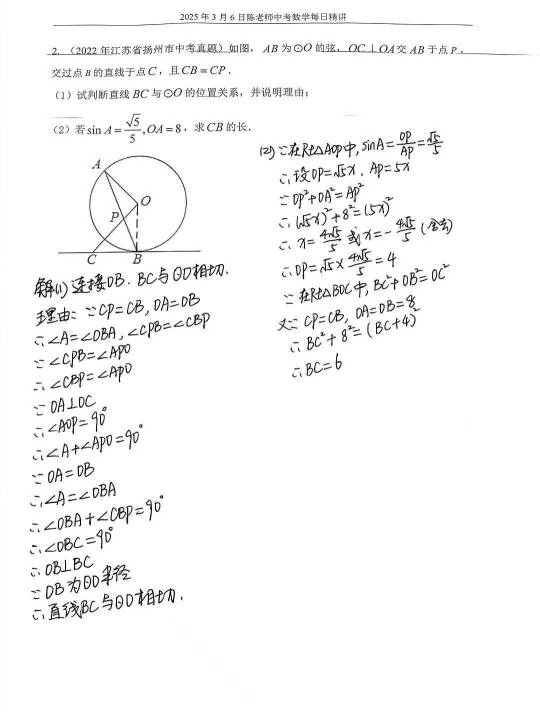 2025年3月6日陈老师中考数学每日精讲
2.（2022年江苏省扬州市中考真题）如图，AB为⊙O的弦，OC⊥OA交AB于点P，
交过点B的直线于点C，且CB=CP．
（1）试判断直线BC与⊙O的位置关系，并说明理由；
（2）若sin A=√5/5,OA=8，求CB的长．
A
O
P
C
B
解(1)连接OB．BC与⊙O相切．
理由：∵CP=CB, OA=OB
∴∠A=∠OBA, ∠CPB=∠CBP
∵∠CPB=∠APO
∴∠CBP=∠APO
∵OA⊥OC
∴∠AOP=90°
∴∠A+∠APO=90°
∵OA=OB
∴∠A=∠OBA
∴∠OBA+∠CBP=90°
∴∠OBC=90°
∴OB⊥BC
∵OB为⊙O半径
∴直线BC与⊙O相切．
(2)∵在Rt△AOP中, sinA=OP/AP=√5/5
∴设OP=√5x, AP=5x
∵OP²+OA²=AP²
∴(√5x)²+8²=(5x)²
∴x=4√5/5或x=-4√5/5(舍去)
∴OP=√5×4√5/5=4
∵在Rt△BOC中, BC²+OB²=OC²
又∵CP=CB, OA=OB=8
∴BC²+8²=(BC+4)²
∴BC=6